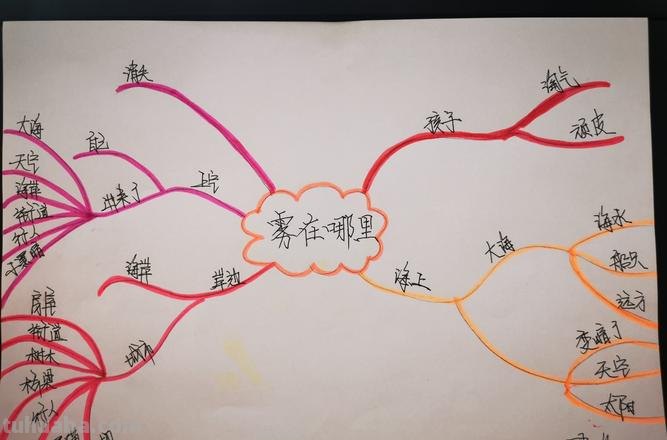 雾在哪里
孩子
淘气
顽皮
海上
大海
海水
船只
远方
变暗了
天空
太阳
岸边
海岸
城市
房屋
街道
树木
桥梁
行人
上空
自己
出来了
大海
天空
海岸
街道
行人
消失
tuhuaba.com